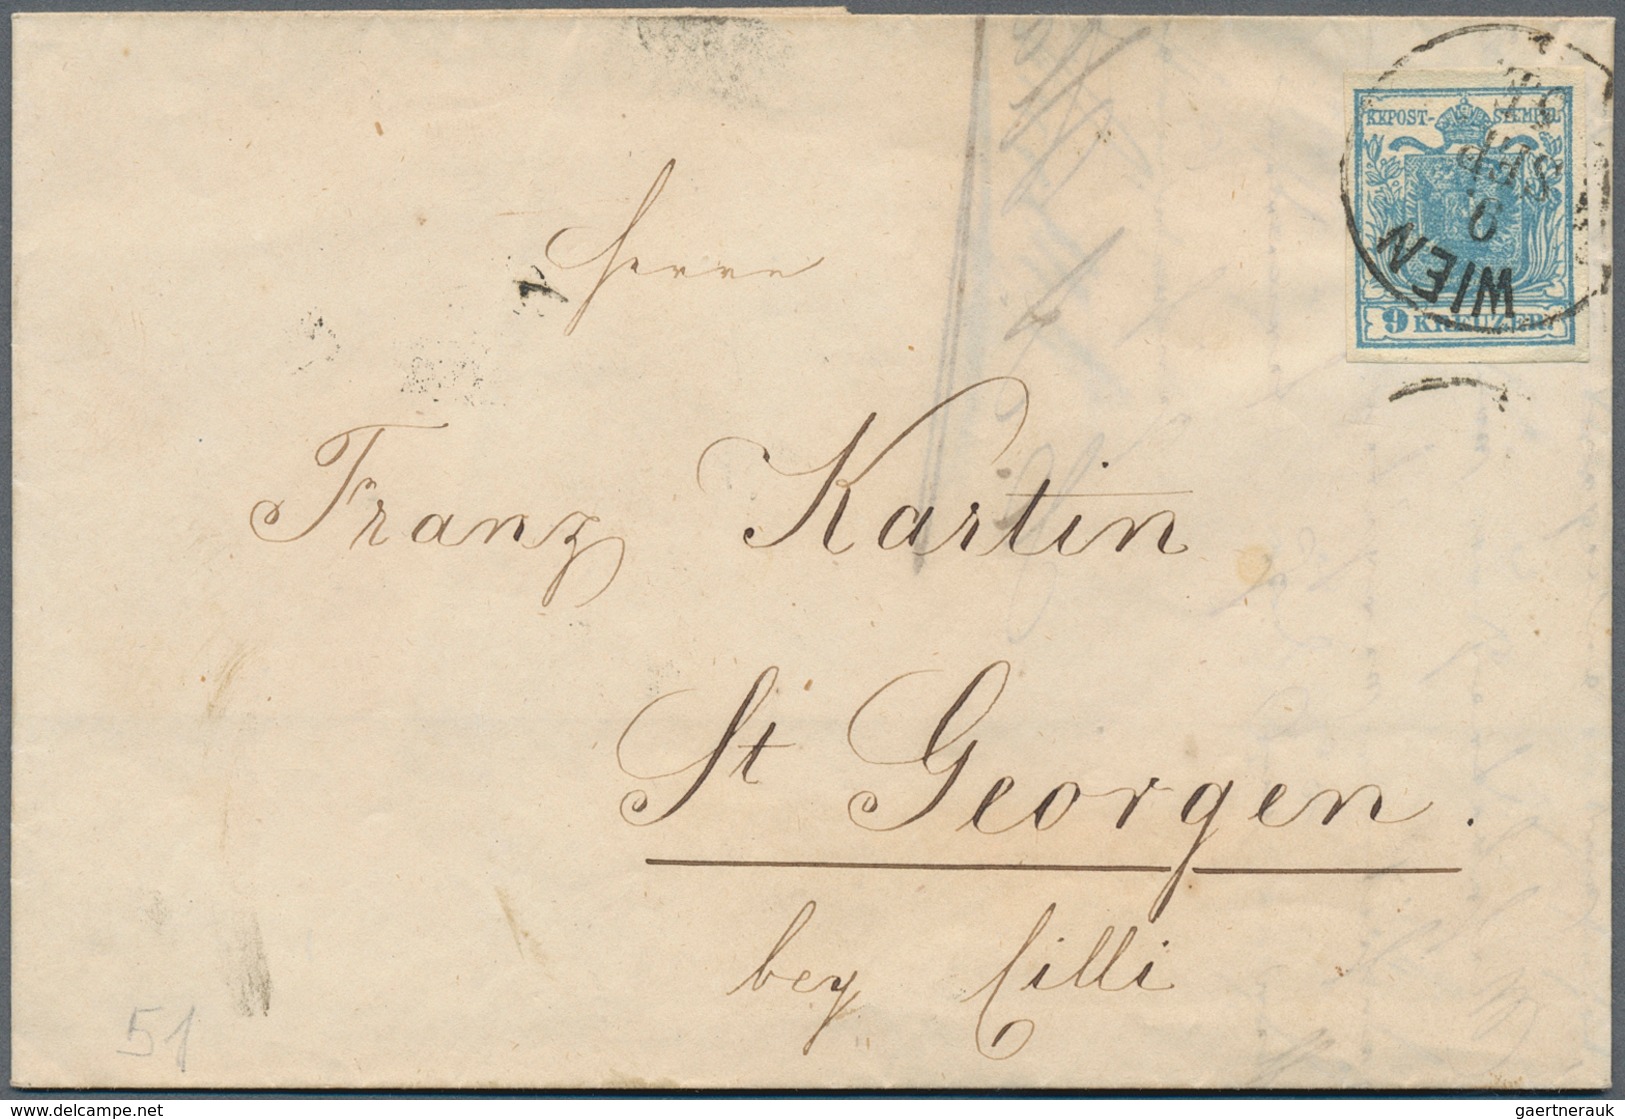 KKPOST-STEMPEL
WIEN
9 KREUZER
SEP
Herrn
Franz Kartin
St Georgen.
bey Cilli
51
www.delcampe.net
gaertnerauk